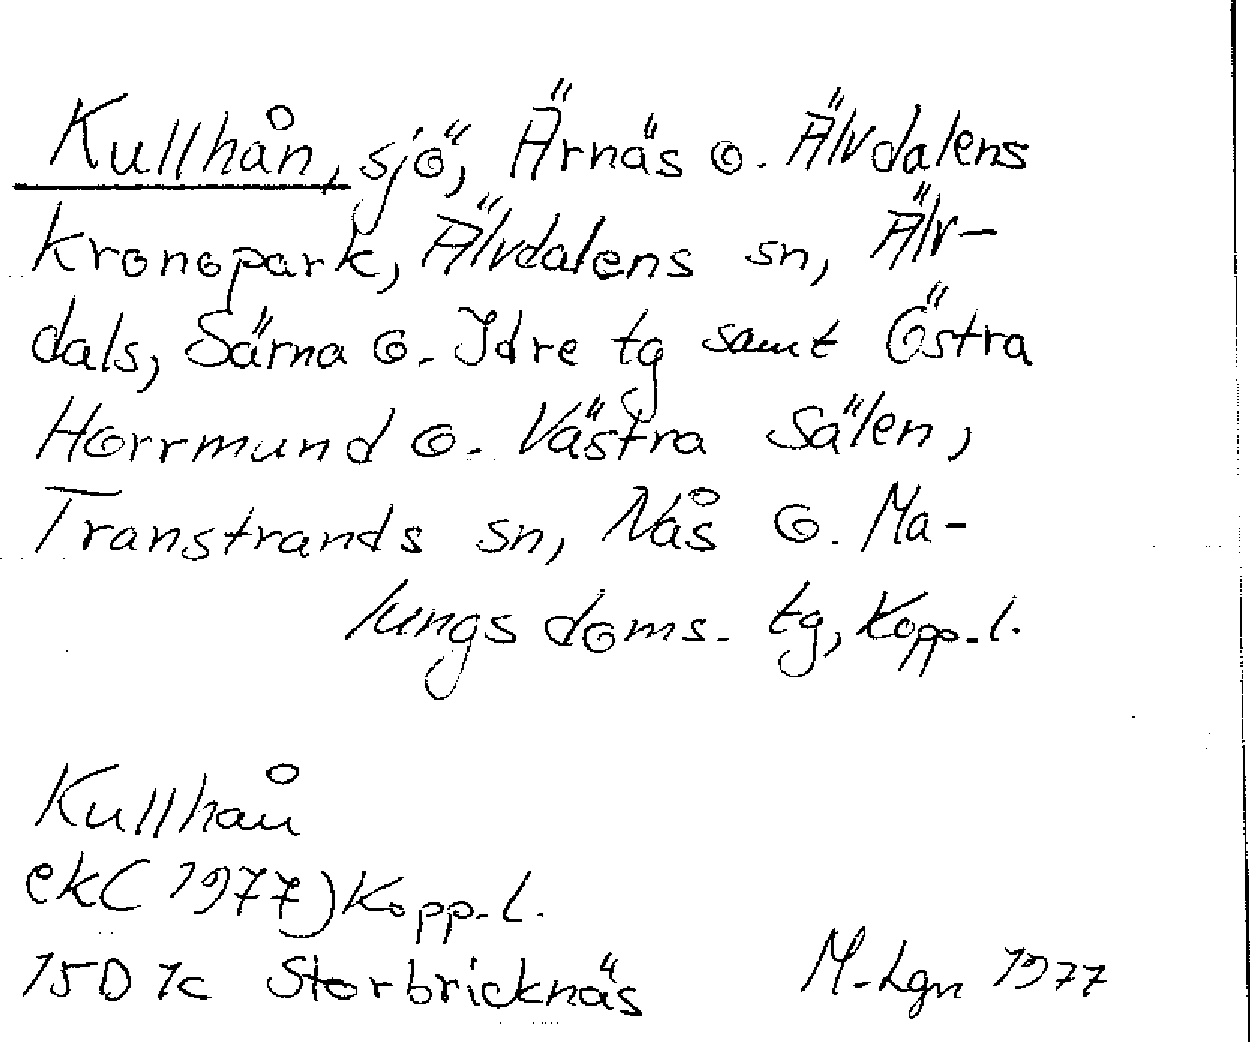 Kullhån, sjö, Ärnäs o. Älvdalens
kronopark, Älvdalens sn, Älv-
dals, Särna o. Idre tg samt Östra
Horrmund o. Västra Sälen,
Transtrands sn, Nås o. Ma-
lungs doms. tg, Kopp.l.
Kullhån
ek (1977) Kopp.l.
15D 1c Storbricknäs
M-Lgn 1977